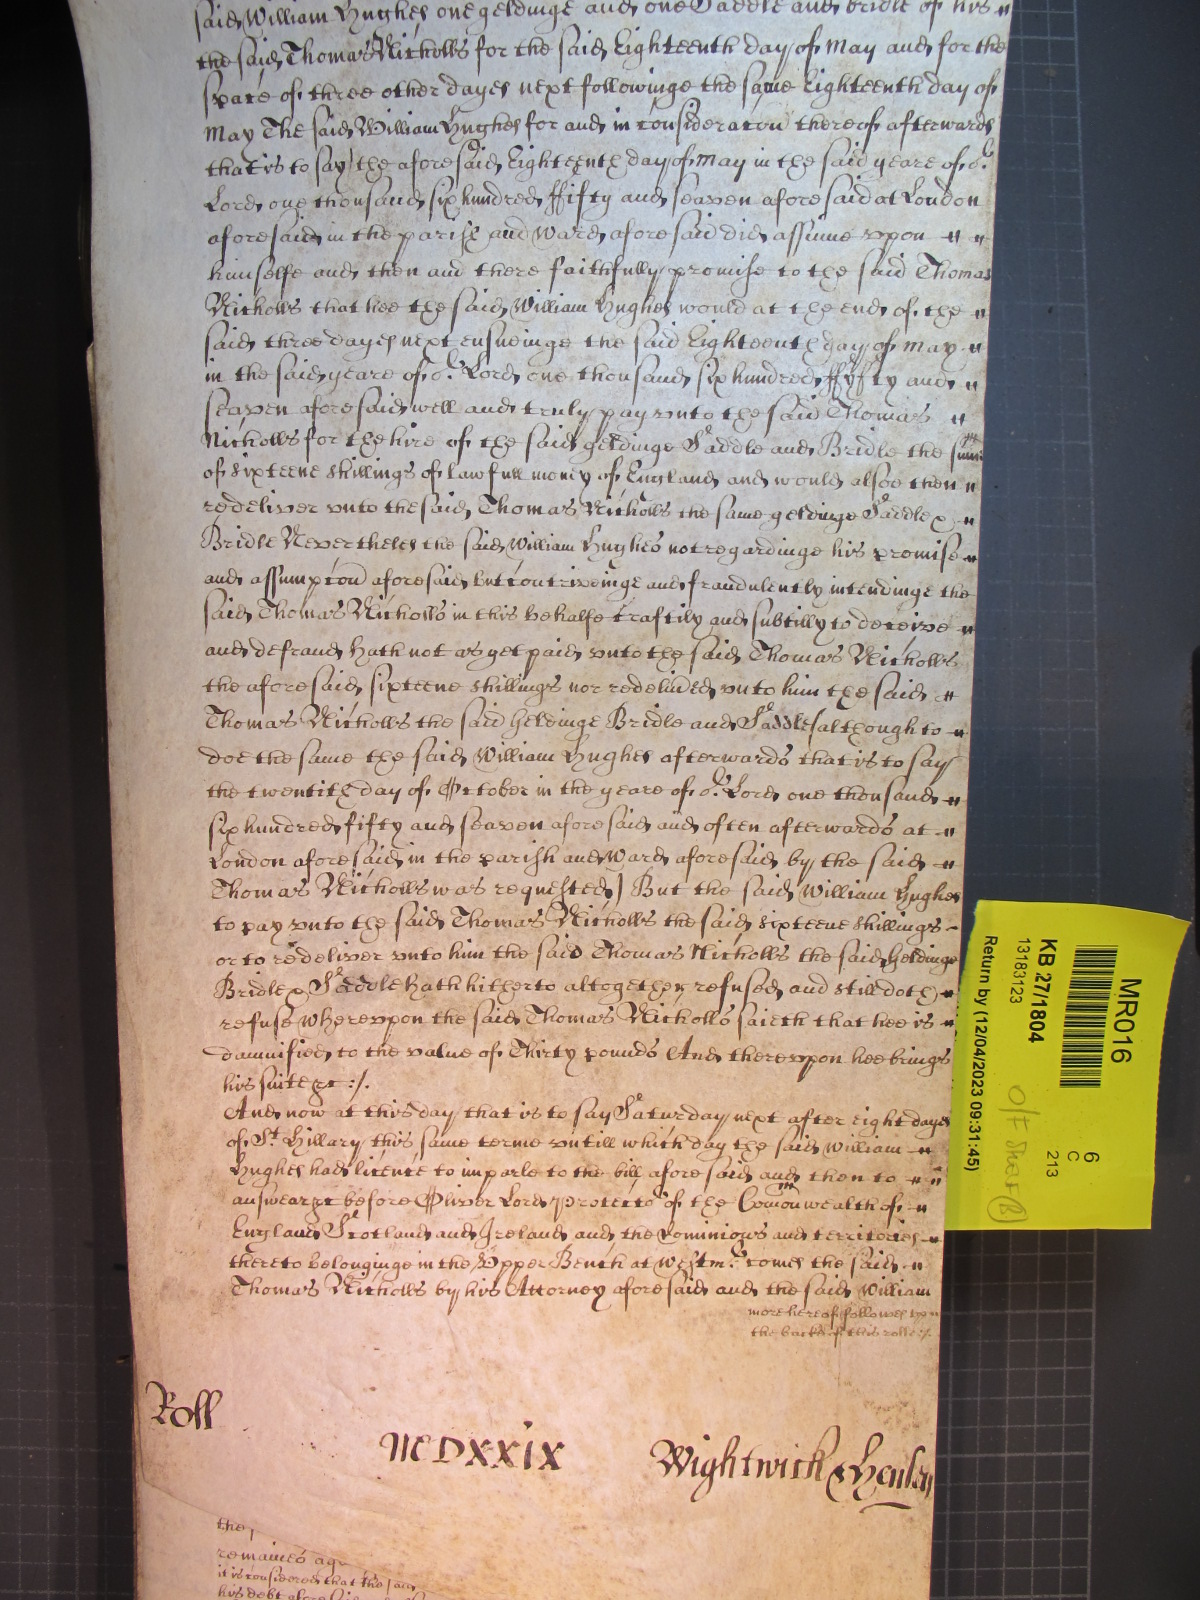 said William Hughes one geldinge and one Saddle and bridle of his
the said Thomas Nicholls for the said Eighteenth day of May and for the
space of three other dayes next followinge the same Eighteenth day of
May The said William Hughes for and in consideracon thereof afterwards
that is to say the aforesaid Eighteenth day of May in the said yeare of or
Lord one thousand six hundred ffifty and seaven aforesaid at London
aforesaid in the parish and Ward aforesaid did assume vpon
himselfe and then and there faithfully promise to the said Thomas
Nicholls that hee the said William Hughes would at the end of the
said three dayes next ensueinge the said Eighteenth day of May
in the said yeare of or Lord one thousand six hundred ffyfty and
seaven aforesaid well and truly pay vnto the said Thomas
Nicholls for the hire of the said geldinge Saddle and Bridle the sume
of sixteene shillings of lawfull money of England and would alsoe then
redeliver vnto the said Thomas Nicholls the same geldinge Saddle &
Bridle Neverthelesse the said William Hughes not regardinge his promise
and assumpcon aforesaid but contriveinge and fraudulently intendinge the
said Thomas Nicholls in this behalfe craftily and subtilly to deceive
and defraud hath not as yet paid vnto the said Thomas Nicholls
the aforesaid sixteene shillings nor redelivred vnto him the said
Thomas Nicholls the said Geldinge Bridle and Saddle (although to
doe the same the said William Hughes afterwards that is to say
the twentith day of October in the yeare of or Lord one thousand
six hundred fifty and seaven aforesaid and often afterwards at
London aforesaid in the parish and Ward aforesaid by the said
Thomas Nicholls was requested) But the said William Hughes
to pay vnto the said Thomas Nicholls the said sixteene shillings
or to redeliver vnto him the said Thomas Nicholls the said Geldinge
Bridle & Saddle hath hitherto altogether refused and still doth
refuse Wherevpon the said Thomas Nicholls saieth that hee is
damnified to the value of Thirty pounds And therevpon hee brings
his suite &c :/.
And now at this day that is to say Saturday next after eight dayes
of St Hillary this same terme vntill which day the said William
Hughes had licence to imparle to the bill aforesaid and then to
answeare &c before Oliver Lord Protector of the Comonwealth of
England Scotland and Ireland and the Dominions and territories
thereto belonginge in the Vpper Bench at Westmr comes the said
Thomas Nicholls by his Attorney aforesaid and the said William
more hereof followes vpon
the backe of this rolle :/.
Roll
MDXXIX
Wightwick & Hensley
the
remaines
it is considered that the said
his debt aforesaid
MR016
KB 27/1804
13183123
Return by (12/04/2023 09:31:45)
6
C
213